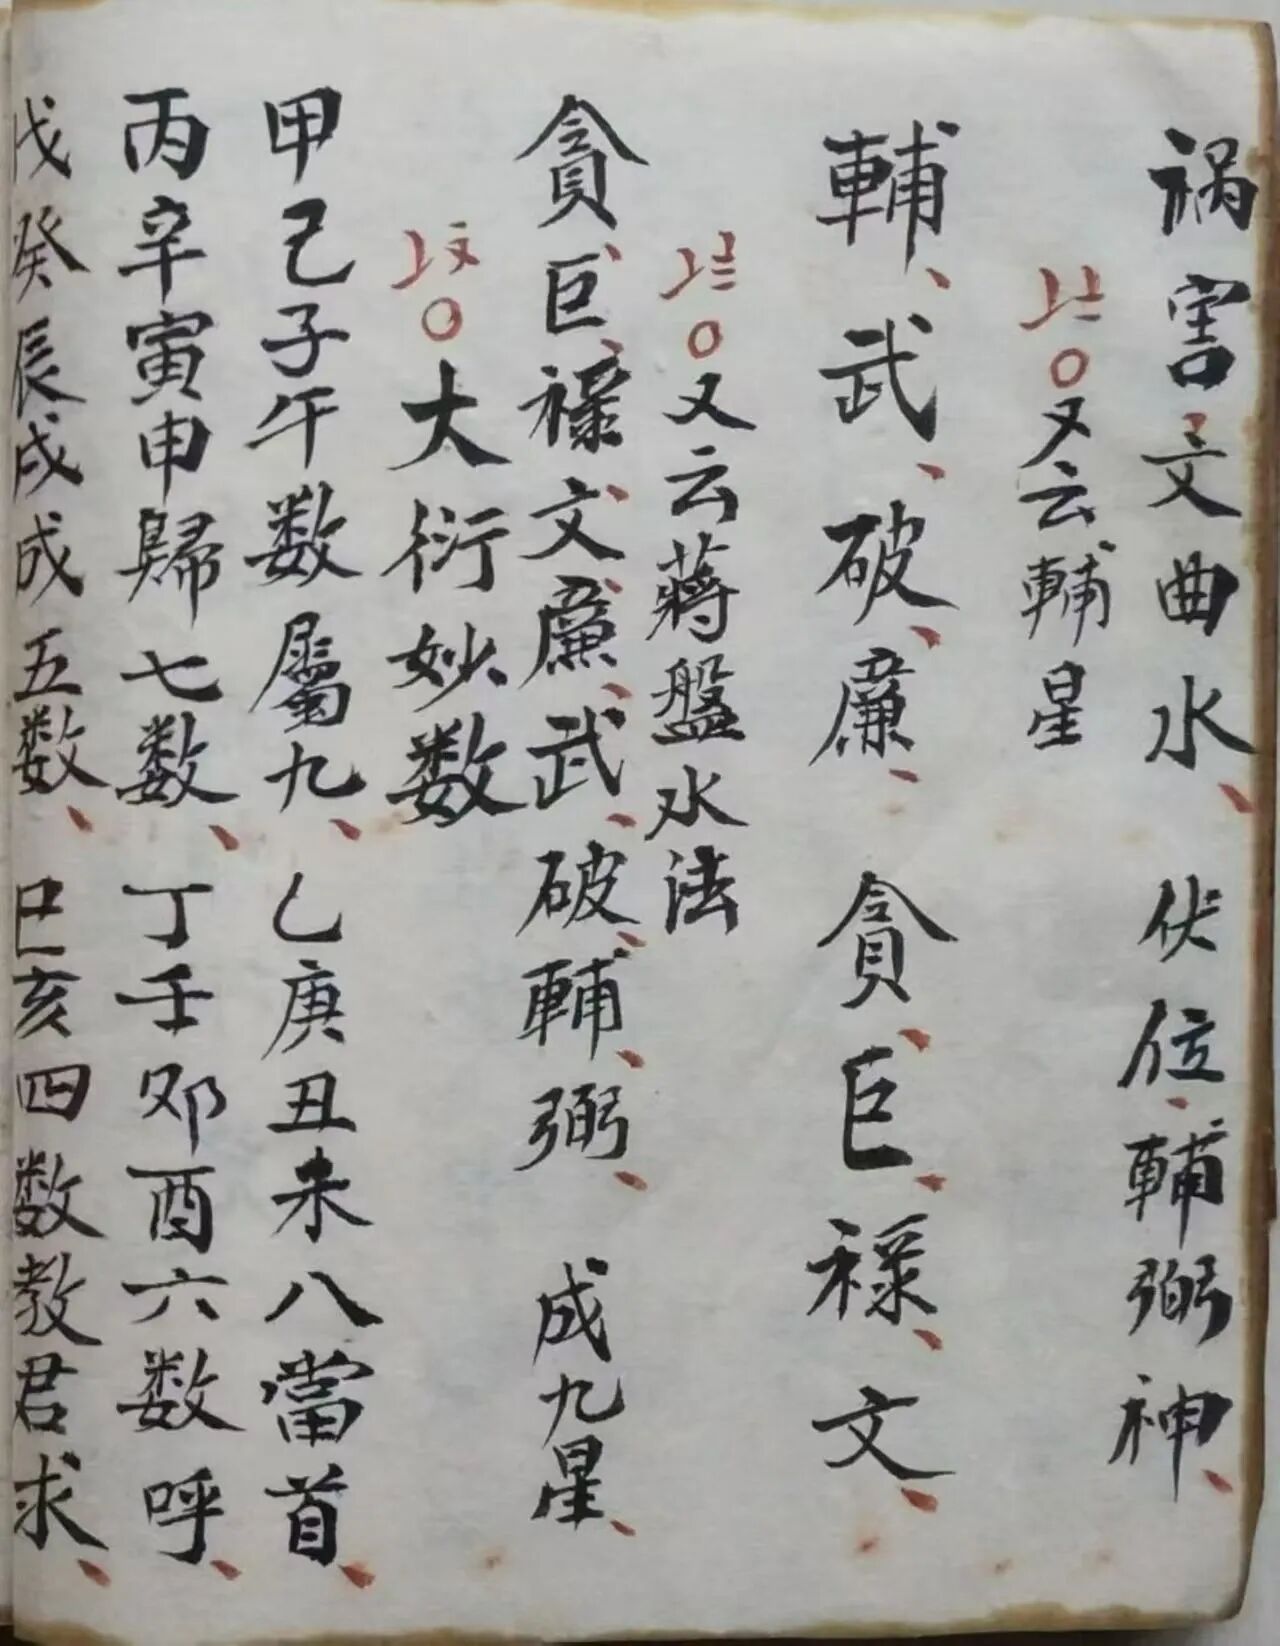 祸害文曲水、伏位、輔弼神、
〇又云輔星
輔、武、破、廉、貪、巨、禄、文、
〇又云蔣盤水法
貪、巨、禄、文、廉、武、破、輔、弼、成九星、
〇大衍妙数
甲己子午数屬九、乙庚丑未八當首、
丙辛寅申歸七数、丁壬邜酉六数呼、
戊癸辰戌成五数、巳亥四数教君求、